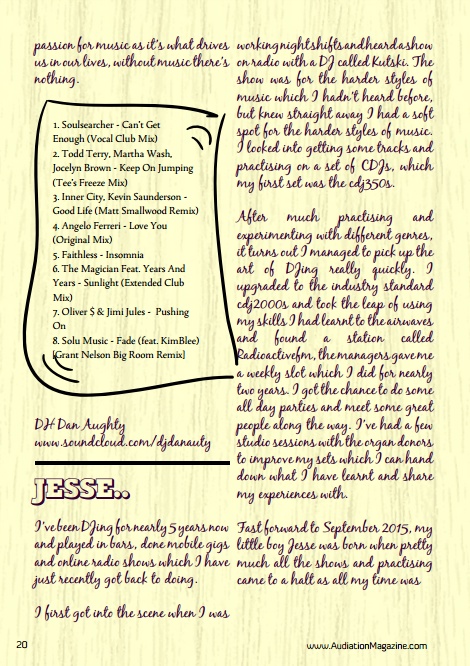 passion for music as it's what drives
us in our lives, without music there's
nothing.
1. Soulsearcher - Can't Get
Enough (Vocal Club Mix)
2. Todd Terry, Martha Wash,
Jocelyn Brown - Keep On Jumping
(Tee's Freeze Mix)
3. Inner City, Kevin Saunderson -
Good Life (Matt Smallwood Remix)
4. Angelo Ferreri - Love You
(Original Mix)
5. Faithless - Insomnia
6. The Magician Feat. Years And
Years - Sunlight (Extended Club
Mix)
7. Oliver $ & Jimi Jules - Pushing
On
8. Solu Music - Fade (feat. KimBlee)
[Grant Nelson Big Room Remix]
DH Dan Aughty
www.soundcloud.com/djdanauty
JESSE..
I've been DJing for nearly 5 years now
and played in bars, done mobile gigs
and online radio shows which I have
just recently got back to doing.
I first got into the scene when I was
working nightshifts and heard a show
on radio with a DJ called Kutski. The
show was for the harder styles of
music which I hadn't heard before,
but knew straight away I had a soft
spot for the harder styles of music.
I looked into getting some tracks and
practising on a set of CDJs, which
my first set was the cdj350s.
After much practising and
experimenting with different genres,
it turns out I managed to pick up the
art of DJing really quickly. I
upgraded to the industry standard
cdj2000s and took the leap of using
my skills I had learnt to the airwaves
and found a station called
Radioactivefm, the managers gave me
a weekly slot which I did for nearly
two years. I got the chance to do some
all day parties and meet some great
people along the way. I've had a few
studio sessions with the organ donors
to improve my sets which I can hand
down what I have learnt and share
my experiences with.
Fast forward to September 2015, my
little boy Jesse was born when pretty
much all the shows and practising
came to a halt as all my time was
20
www.AudiationMagazine.com